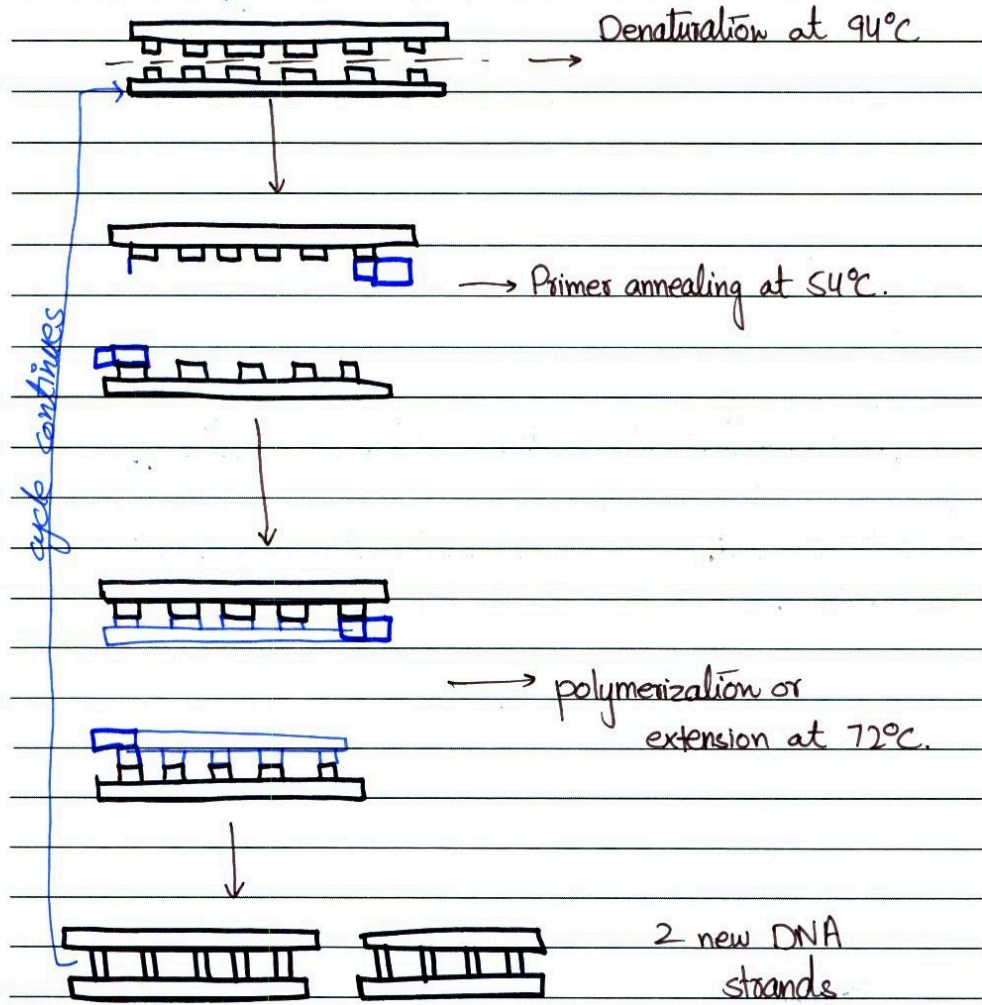 Denaturation at 94°C
Primer annealing at 54°C.
cycle continues
polymerization or
extension at 72°C.
2 new DNA
strands